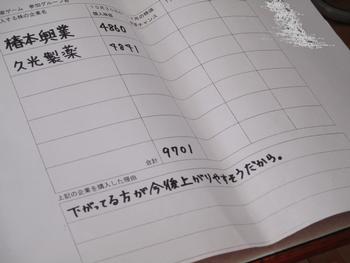 ゲーム 参加グループ
入する株の企業名
椿本興業 4860
久光製薬 4841
合計 9701
上記の企業を購入した理由
下がってる方が今後上がりやすそうだから。